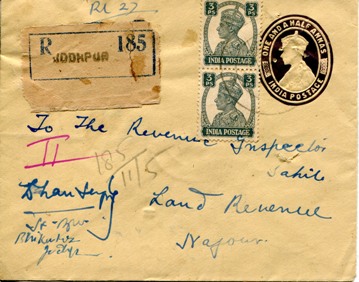 RL 27
R 185
JODHPUR
3 PS
INDIA POSTAGE
3 PS
INDIA POSTAGE
ONE AND A HALF ANNAS
INDIA POSTAGE
To The Revenue Inspector
Sahib
Land Revenue
Nagour.
II
185
11/5